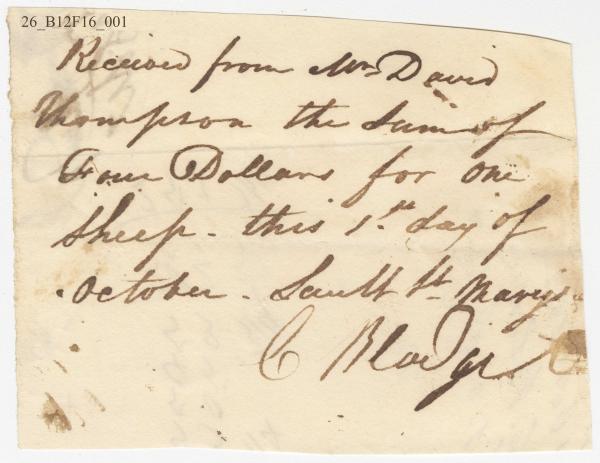 26_B12F16_001
Received from Mr David
Thompson the Sum of
Four Dollars for one
Sheep - this 1st day of
October - Sault St Marys
C Blodget